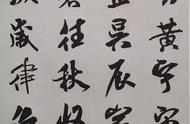 黄宇宙
昃辰宿
往秋收
歲律